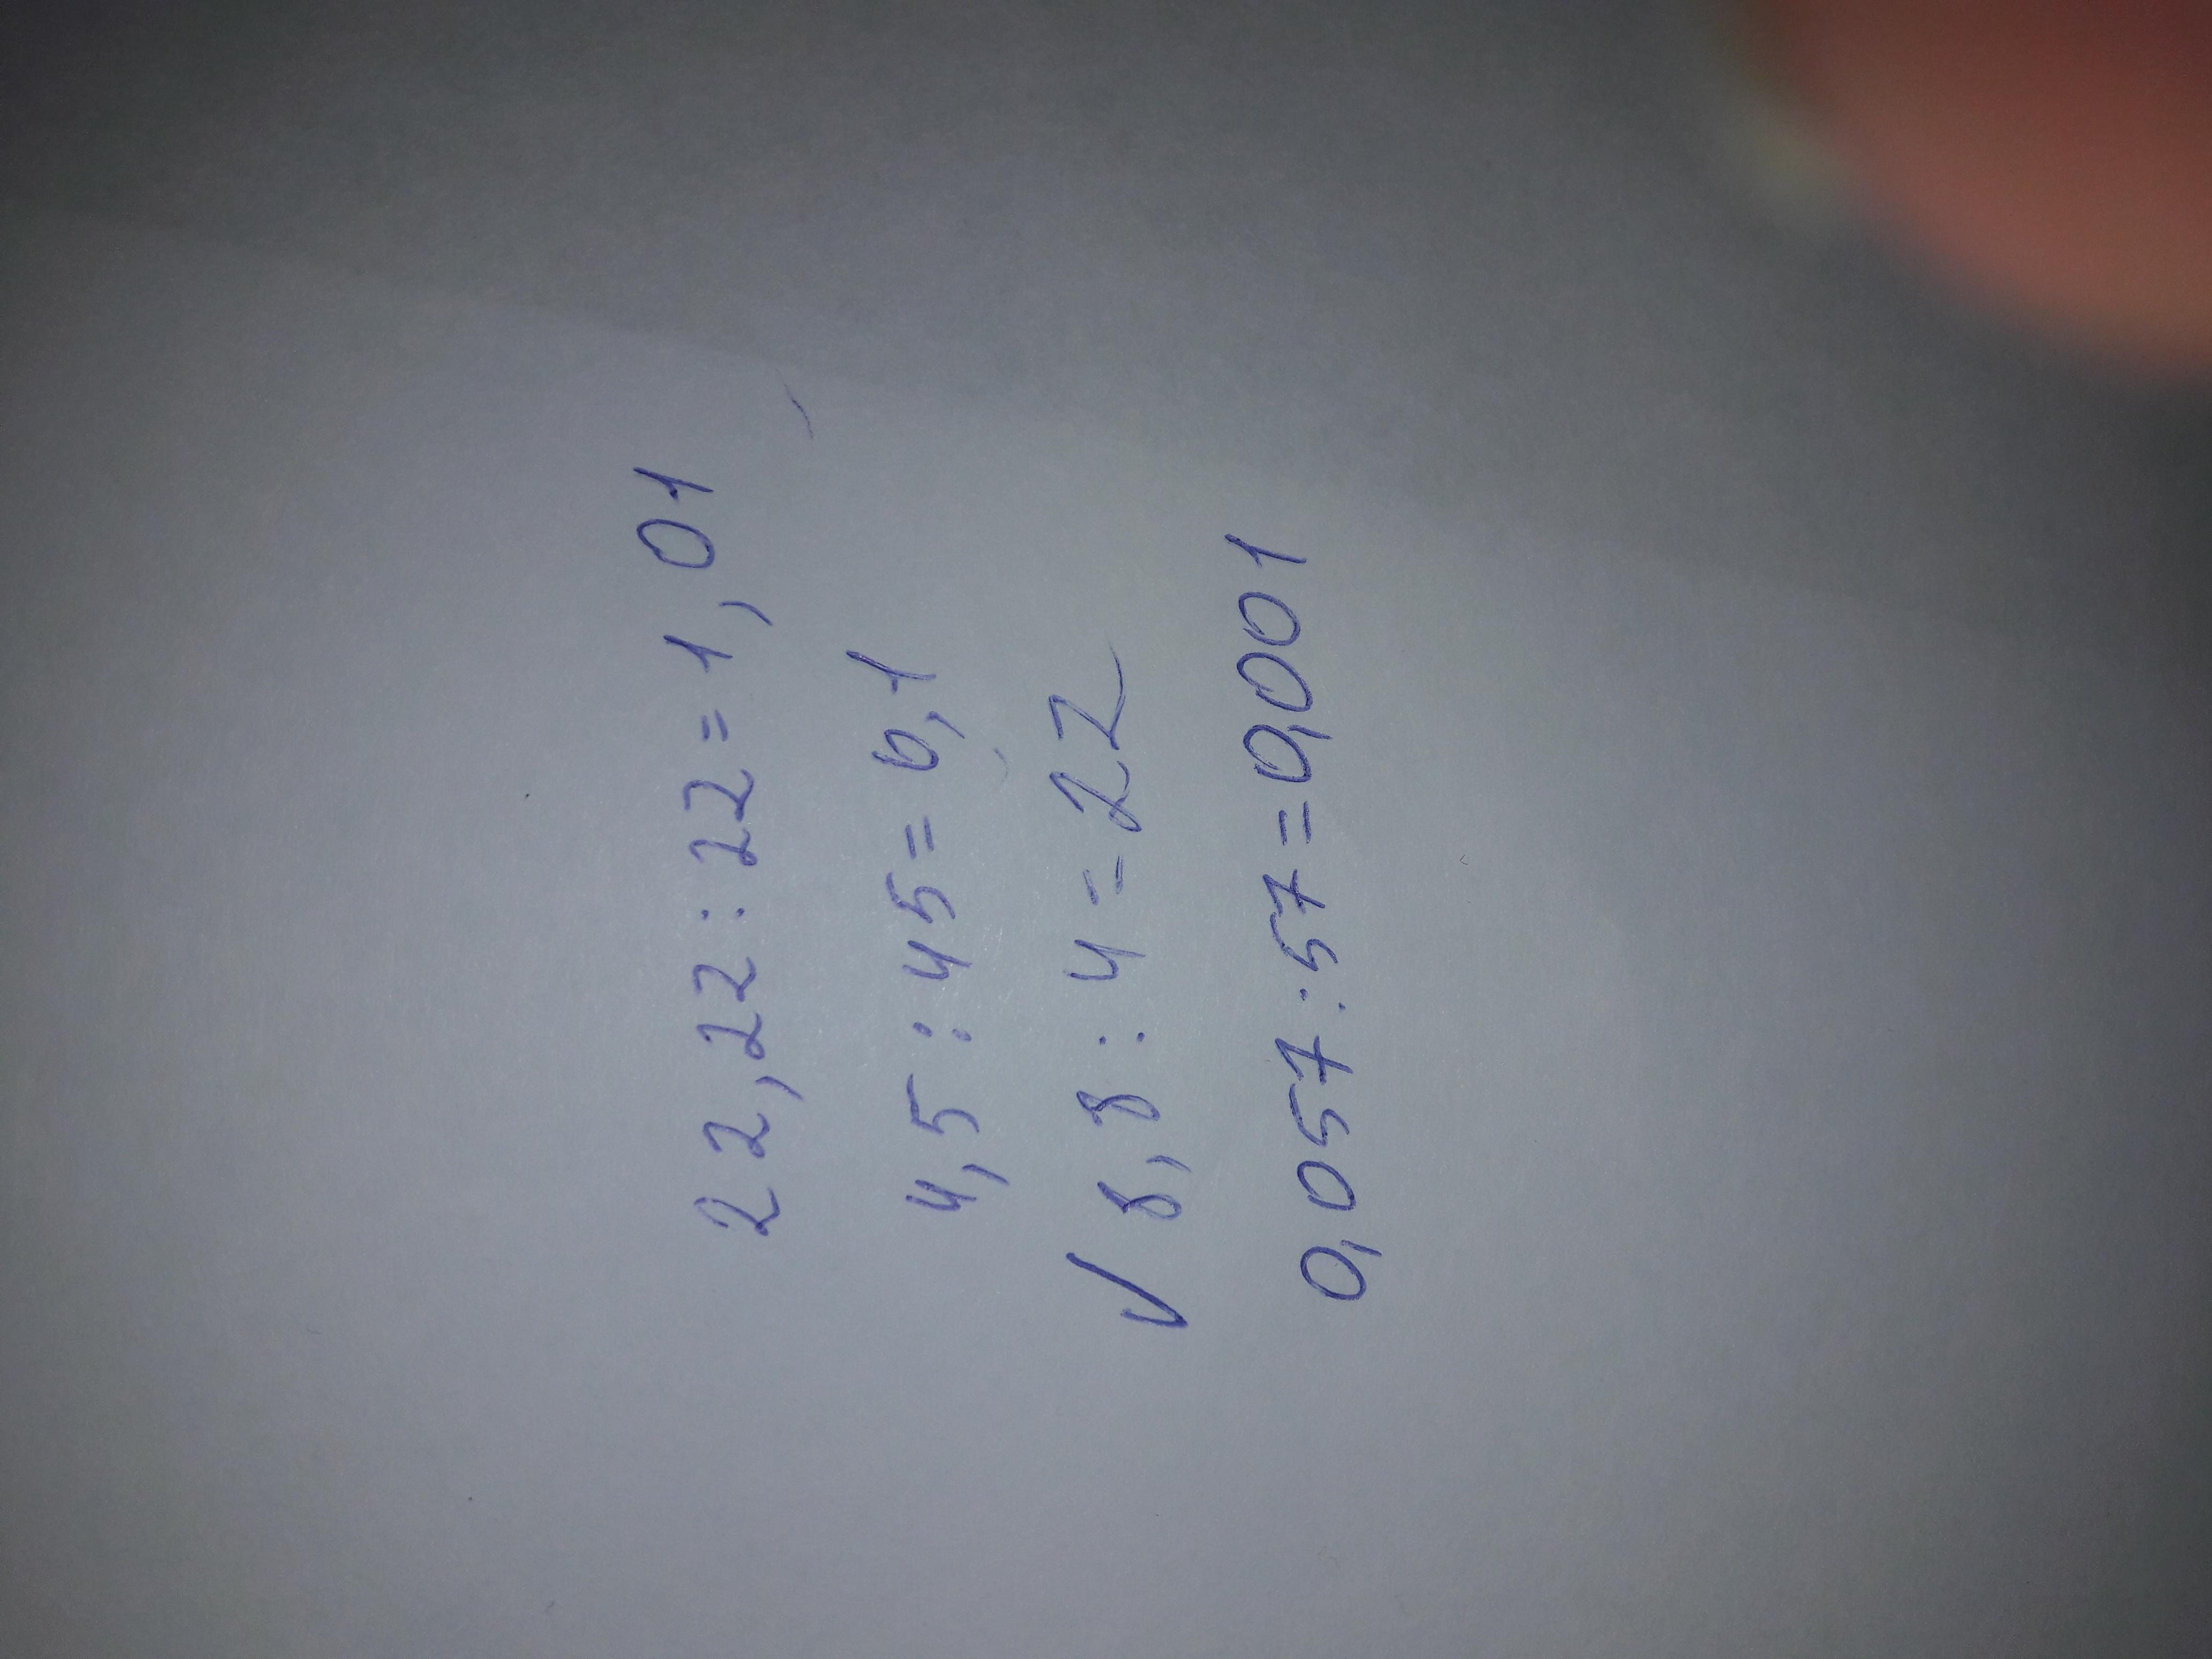 22,22:22=1,01
4,5:45=0,1
√ 8,8:4=22
0,057:57=0,001